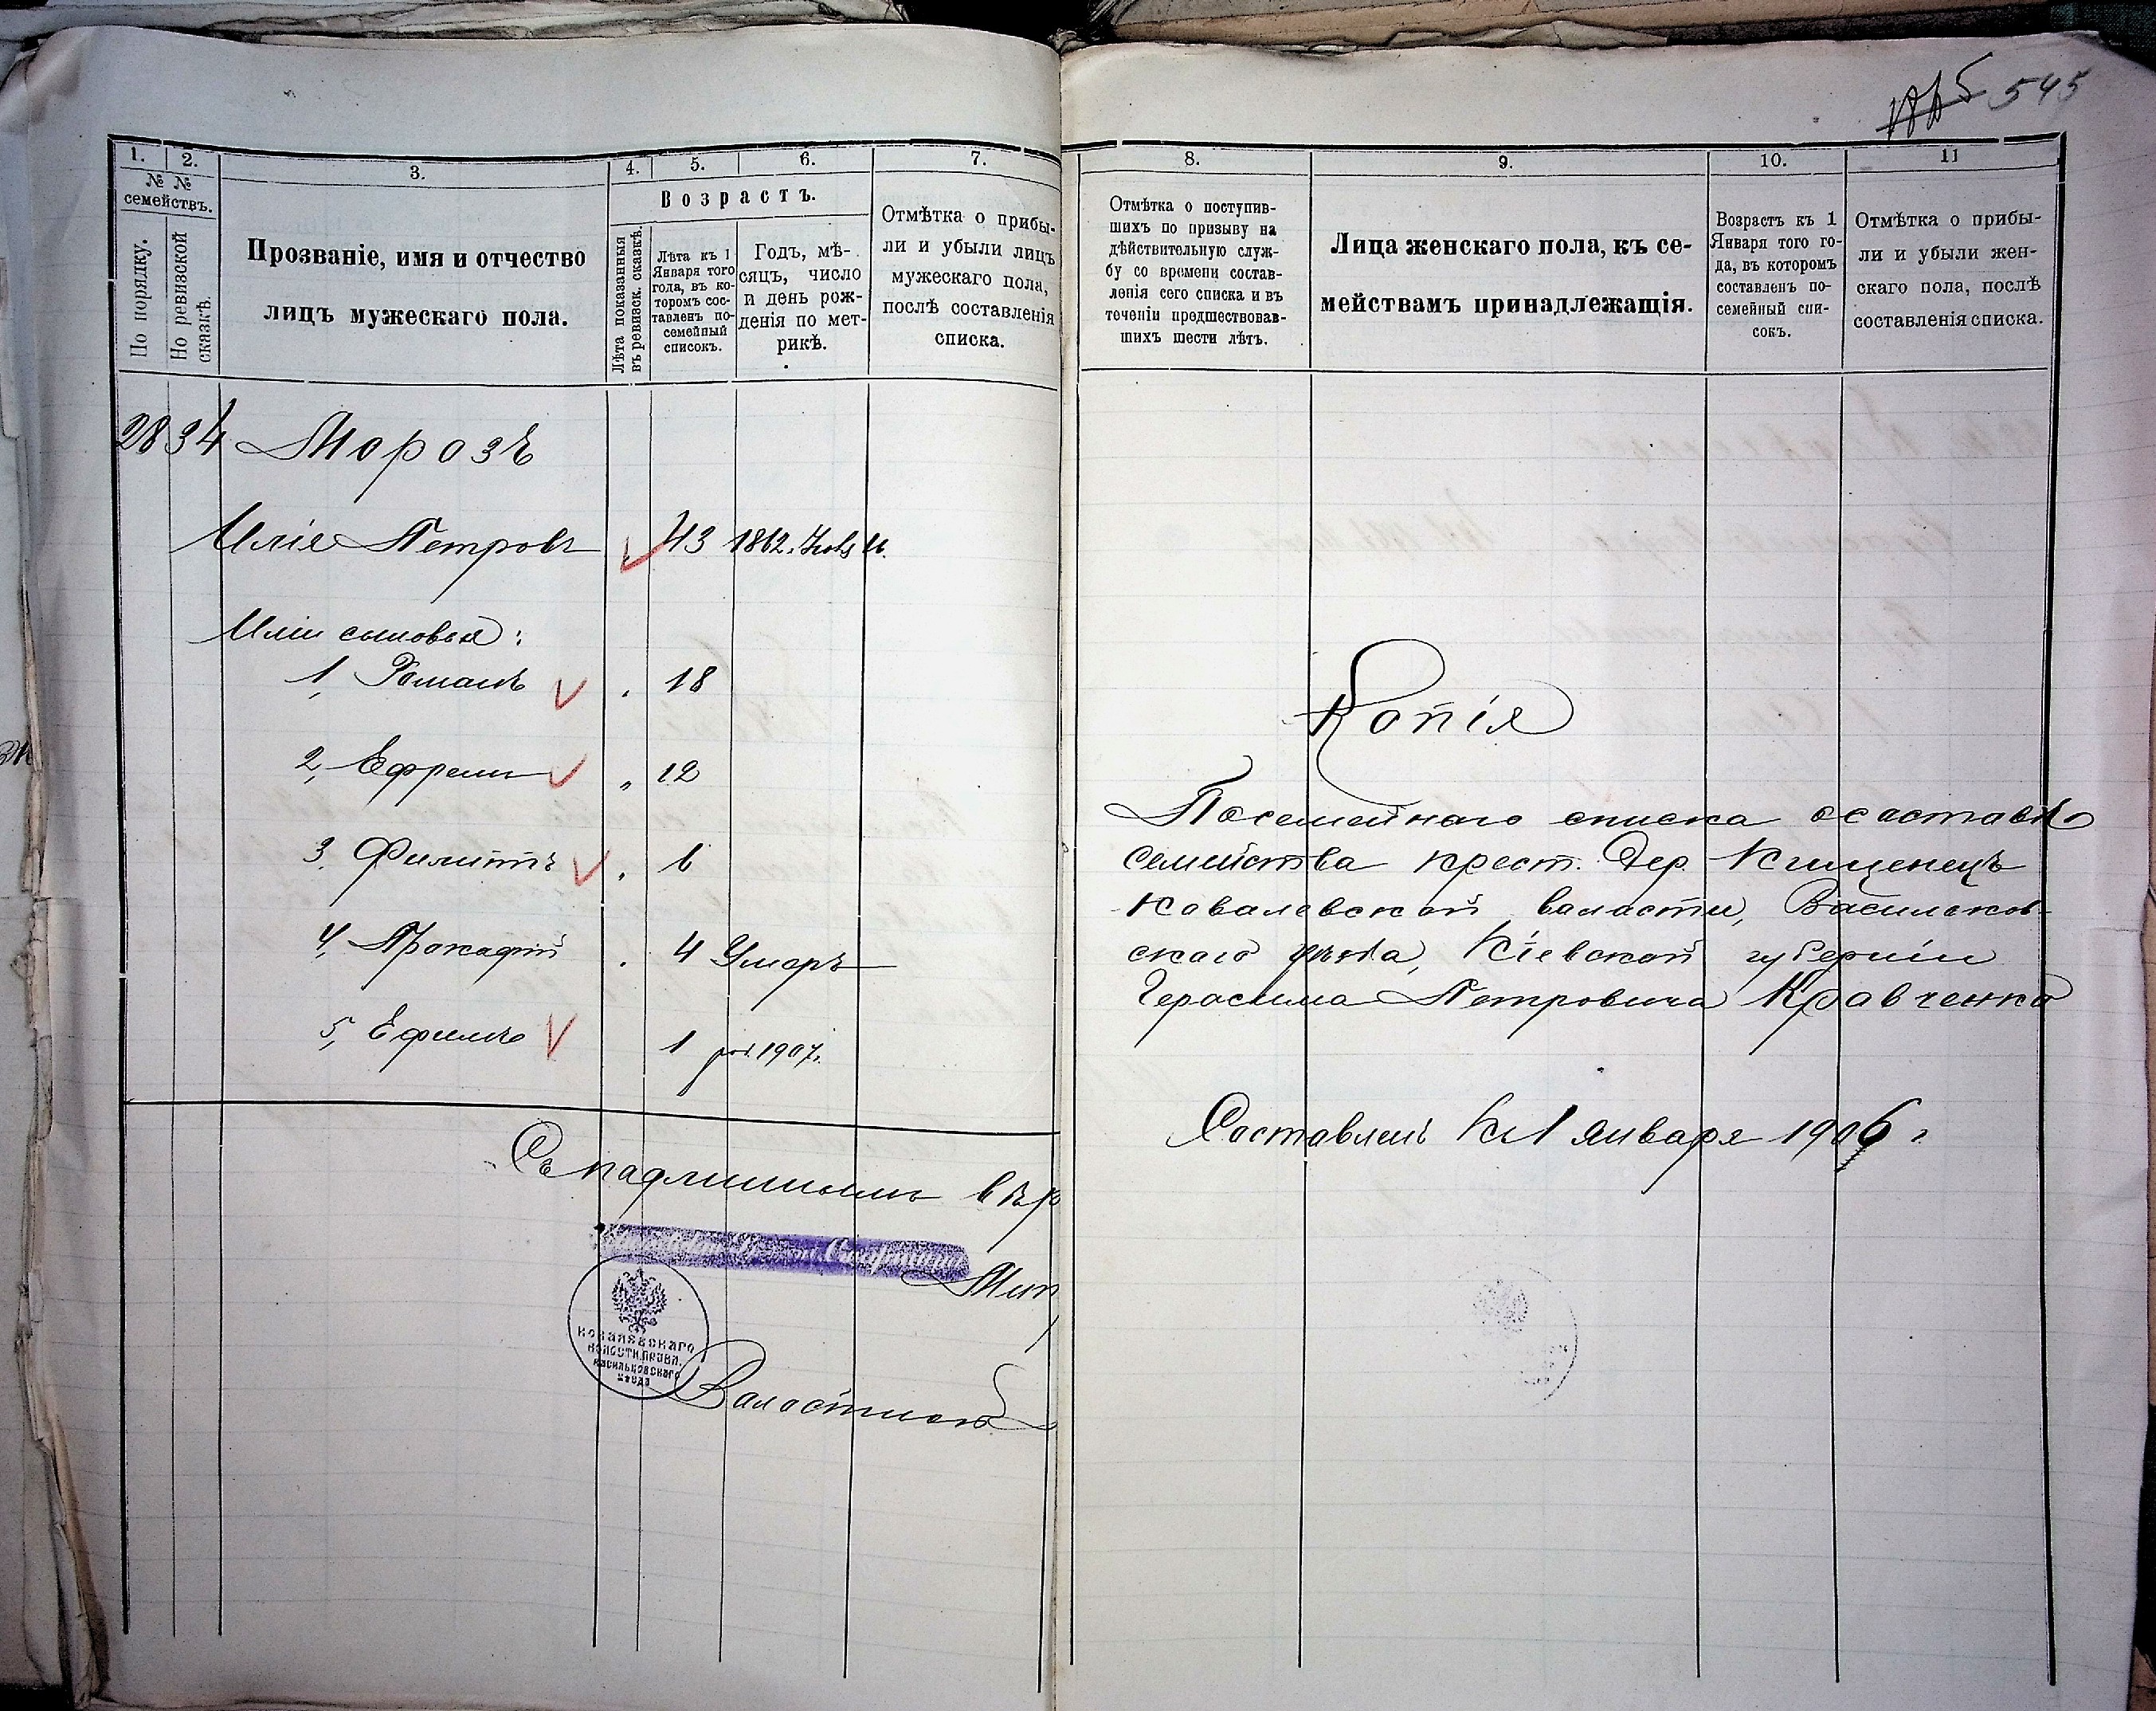 545
1. 2. 3. 4. 5. 6. 7.
№ №
семействъ.
По порядку.
По ревизской
сказкѣ.
Прозваніе, имя и отчество
лицъ мужескаго пола.
Лѣта показанныя
въ ревизск. сказкѣ.
Возрастъ.
Лѣта къ 1
Января того
года, въ ко-
торомъ сос-
тавленъ по-
семейный
списокъ.
Годъ, мѣ-
сяцъ, число
и день рож-
денія по мет-
рикѣ.
Отмѣтка о прибы-
ли и убыли лицъ
мужескаго пола,
послѣ составленія
списка.
2834 Морозъ
Илія Петровъ 43 1862.
Иліи сыновья:
1, Романъ 18
2, Ефремъ „ 12
3, Филиппъ 6
4, Прокофій 4 Умеръ
5, Ефимъ 1 род. 1907г.
Съ подлиннымъ вѣр
КОВАЛЕВСКАГО
ВОЛОСТН. ПРАВЛ.
ВАСИЛЬКОВСКАГО
УѢЗДА
Волостной
8. 9. 10. 11
Отмѣтка о поступив-
шихъ по призыву на
дѣйствительную служ-
бу со времени состав-
ленія сего списка и въ
теченіи предшествовав-
шихъ шести лѣтъ.
Лица женскаго пола, къ се-
мействамъ принадлежащія.
Возрастъ къ 1
Января того го-
да, въ которомъ
составленъ по-
семейный спи-
сокъ.
Отмѣтка о прибы-
ли и убыли жен-
скаго пола, послѣ
составленія списка.
Копія
Посемейнаго списка о составѣ
семейства крест. Дер. Кищенецъ
Ковалевской волости, Васильков-
скаго уѣзда, Кіевской губерніи
Герасима Петровича Кравченко
Составленъ къ 1 января 1906 г.